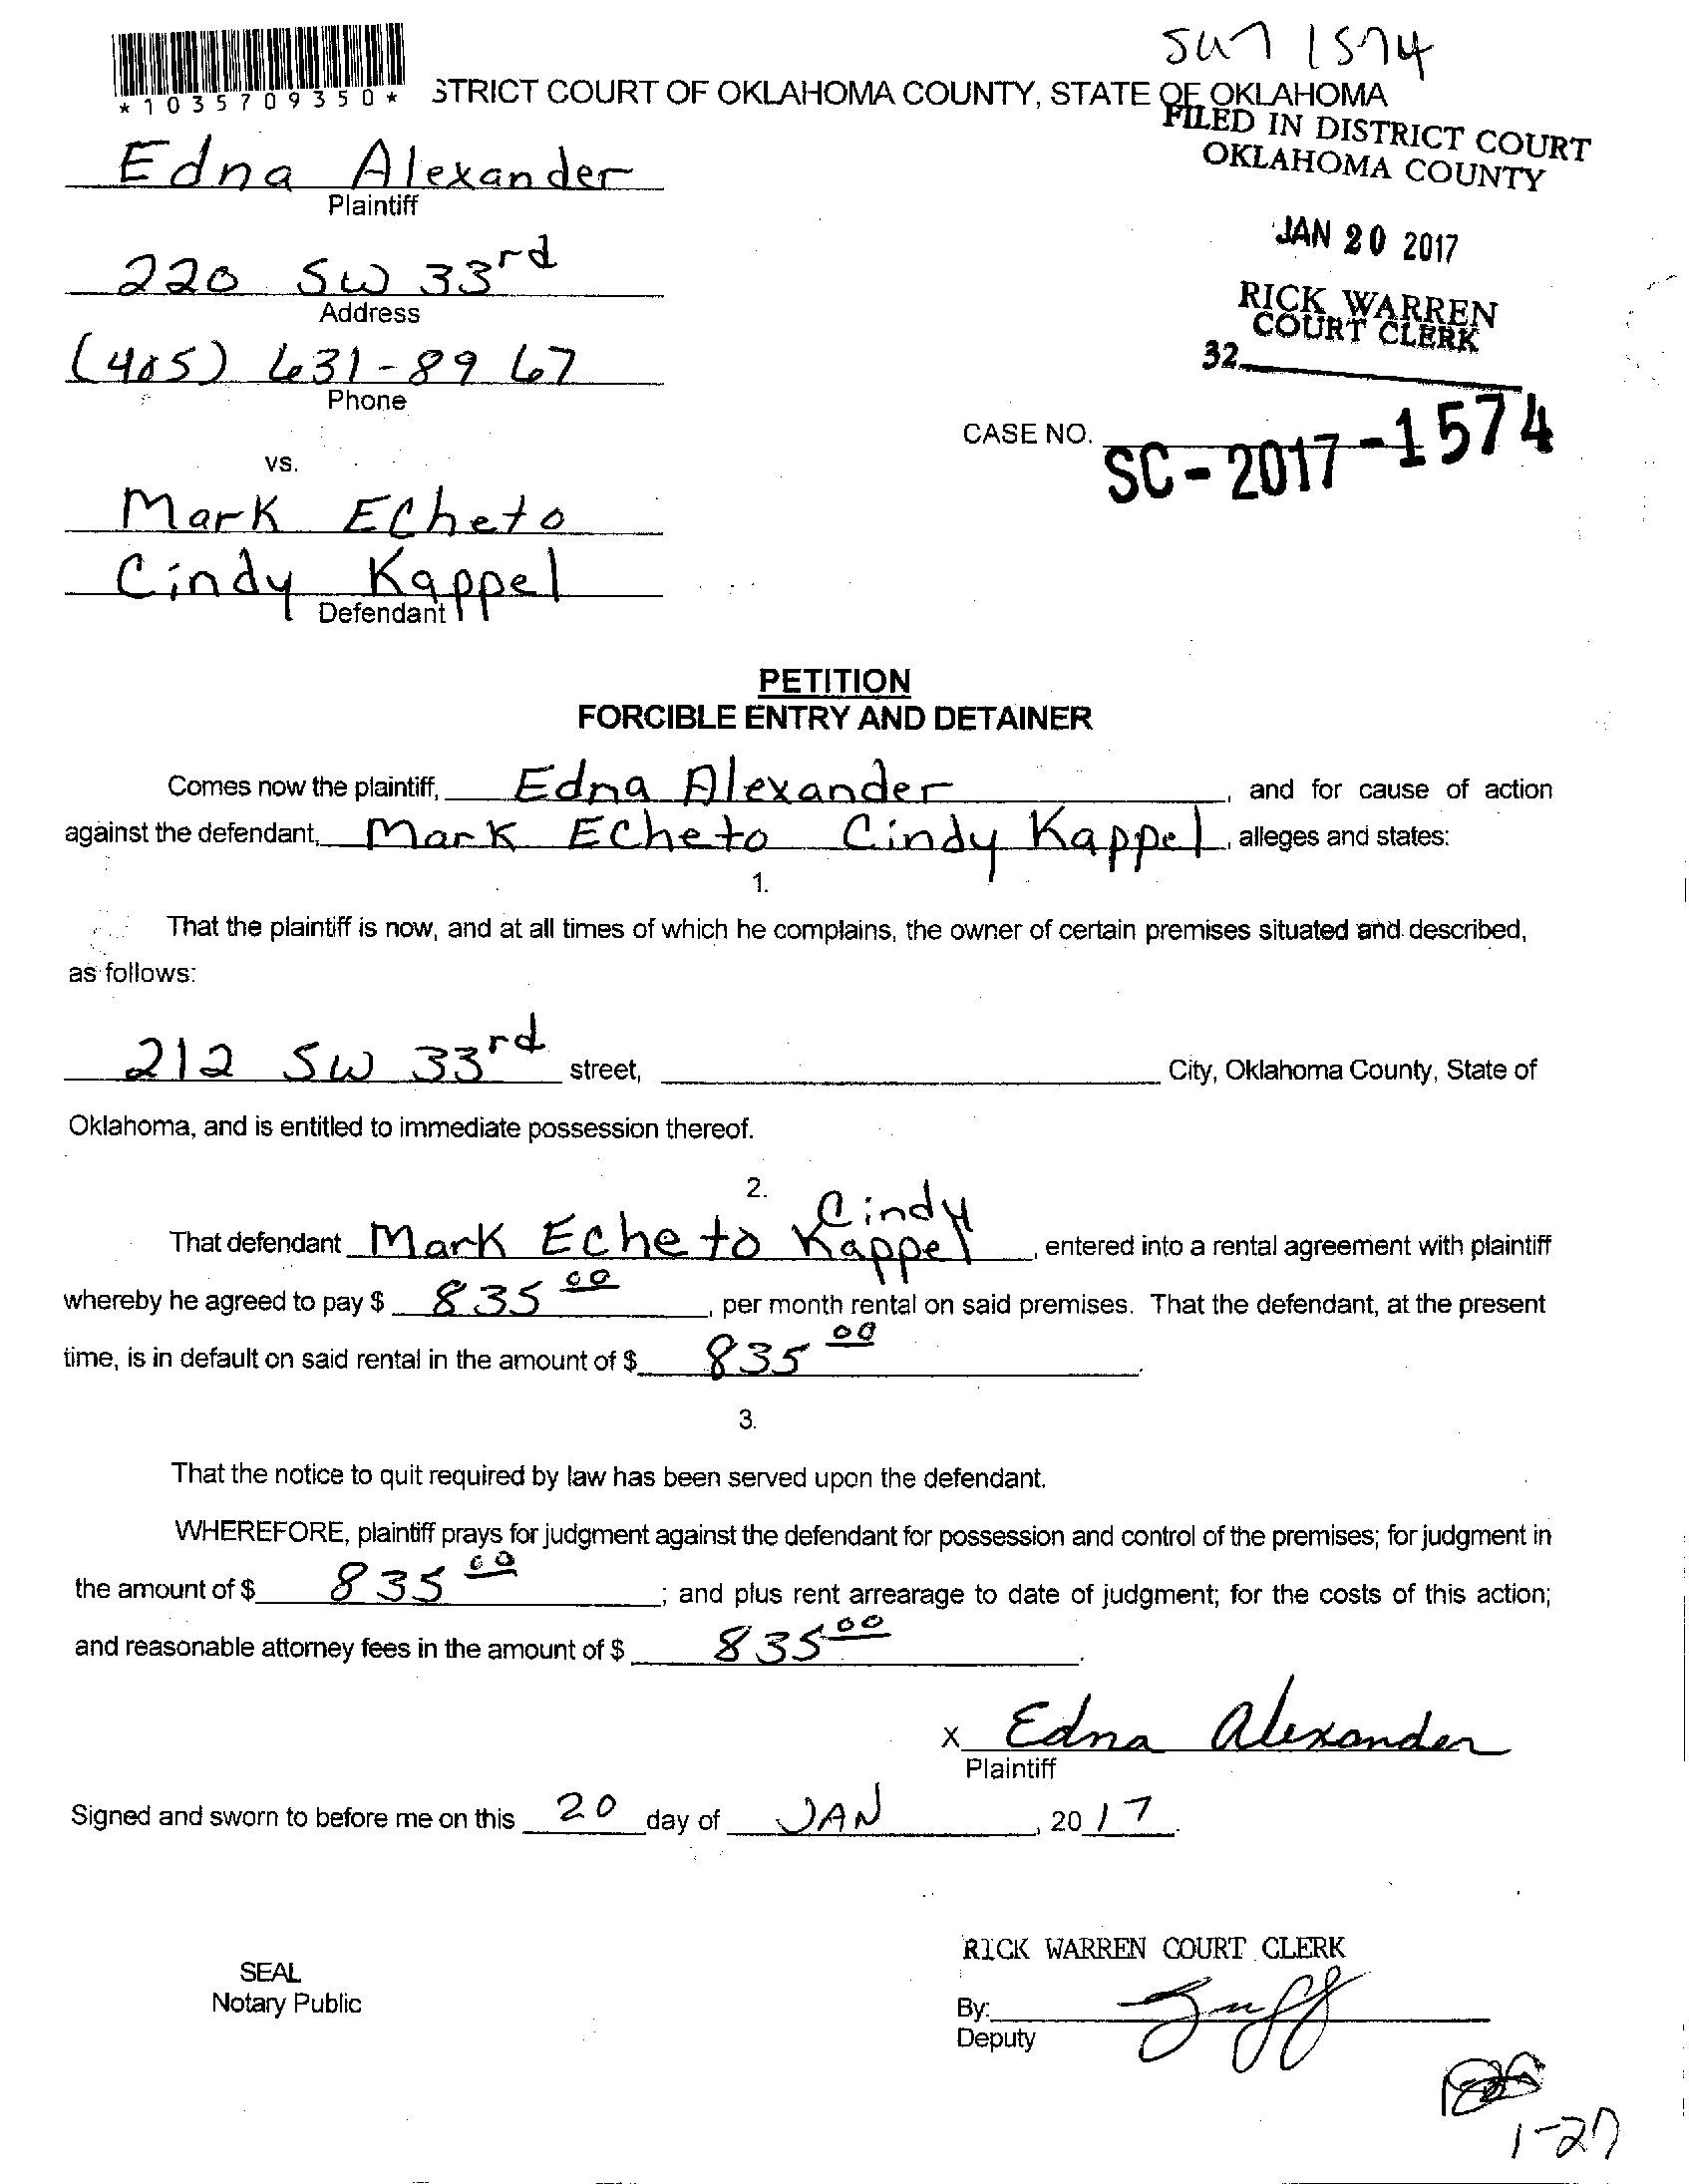 SU7 1574
*1035709350*
STRICT COURT OF OKLAHOMA COUNTY, STATE OF OKLAHOMA
FILED IN DISTRICT COURT
OKLAHOMA COUNTY
Edna Alexander
Plaintiff
JAN 20 2017
220 SW 33rd
Address
RICK WARREN
COURT CLERK
32
(405) 631-8967
Phone
CASE NO. SC-2017-1574
vs.
Mark ECheto
Cindy Kappel
Defendant
PETITION
FORCIBLE ENTRY AND DETAINER
Comes now the plaintiff, Edna Alexander, and for cause of action
against the defendant, Mark ECheto Cindy Kappel, alleges and states:
1.
That the plaintiff is now, and at all times of which he complains, the owner of certain premises situated and described,
as follows:
212 SW 33rd street, City, Oklahoma County, State of
Oklahoma, and is entitled to immediate possession thereof.
2.
That defendant Mark ECheto Cindy Kappel, entered into a rental agreement with plaintiff
whereby he agreed to pay $ 835 00, per month rental on said premises. That the defendant, at the present
time, is in default on said rental in the amount of $ 835 00.
3.
That the notice to quit required by law has been served upon the defendant.
WHEREFORE, plaintiff prays for judgment against the defendant for possession and control of the premises; for judgment in
the amount of $ 835 00; and plus rent arrearage to date of judgment; for the costs of this action;
and reasonable attorney fees in the amount of $ 835 00.
x Edna Alexander
Plaintiff
Signed and sworn to before me on this 20 day of JAN, 2017.
RICK WARREN COURT CLERK
SEAL
Notary Public
By:
Deputy
1-27